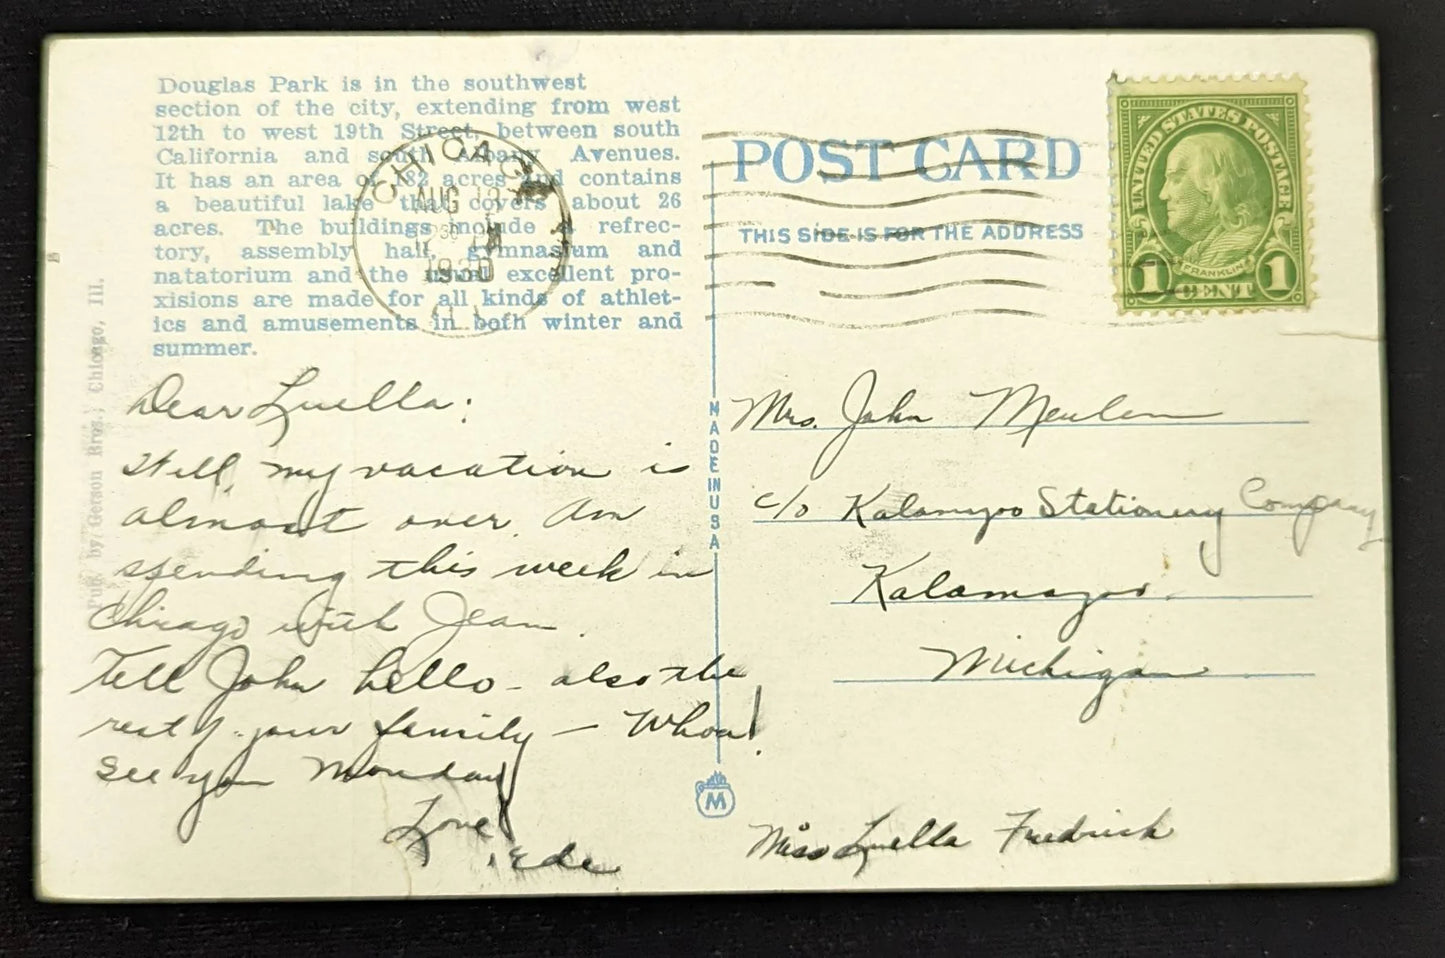 Douglas Park is in the southwest
section of the city, extending from west
12th to west 19th Street, between south
California and south Albany Avenues.
It has an area of 182 acres and contains
a beautiful lake that covers about 26
acres. The buildings include a refrec-
tory, assembly hall, gymnasium and
natatorium and the usual excellent pro-
xisions are made for all kinds of athlet-
ics and amusements in both winter and
summer.
Pub. by Gerson Bros., Chicago, Ill.
CHICAGO
AUG
1930
ILL.
POST CARD
THIS SIDE IS FOR THE ADDRESS
UNITED STATES POSTAGE
FRANKLIN
1 CENT 1
MADE IN USA
M
Dear Luella:
Well, my vacation is
almost over. Am
spending this week in
Chicago with Jean.
Tell John hello - also the
rest of your family - Whoa!
See you Monday
Love,
Mrs. John Meulen
c/o Kalamazoo Stationery Company
Kalamazoo.
Michigan
Miss Luella Fredrick